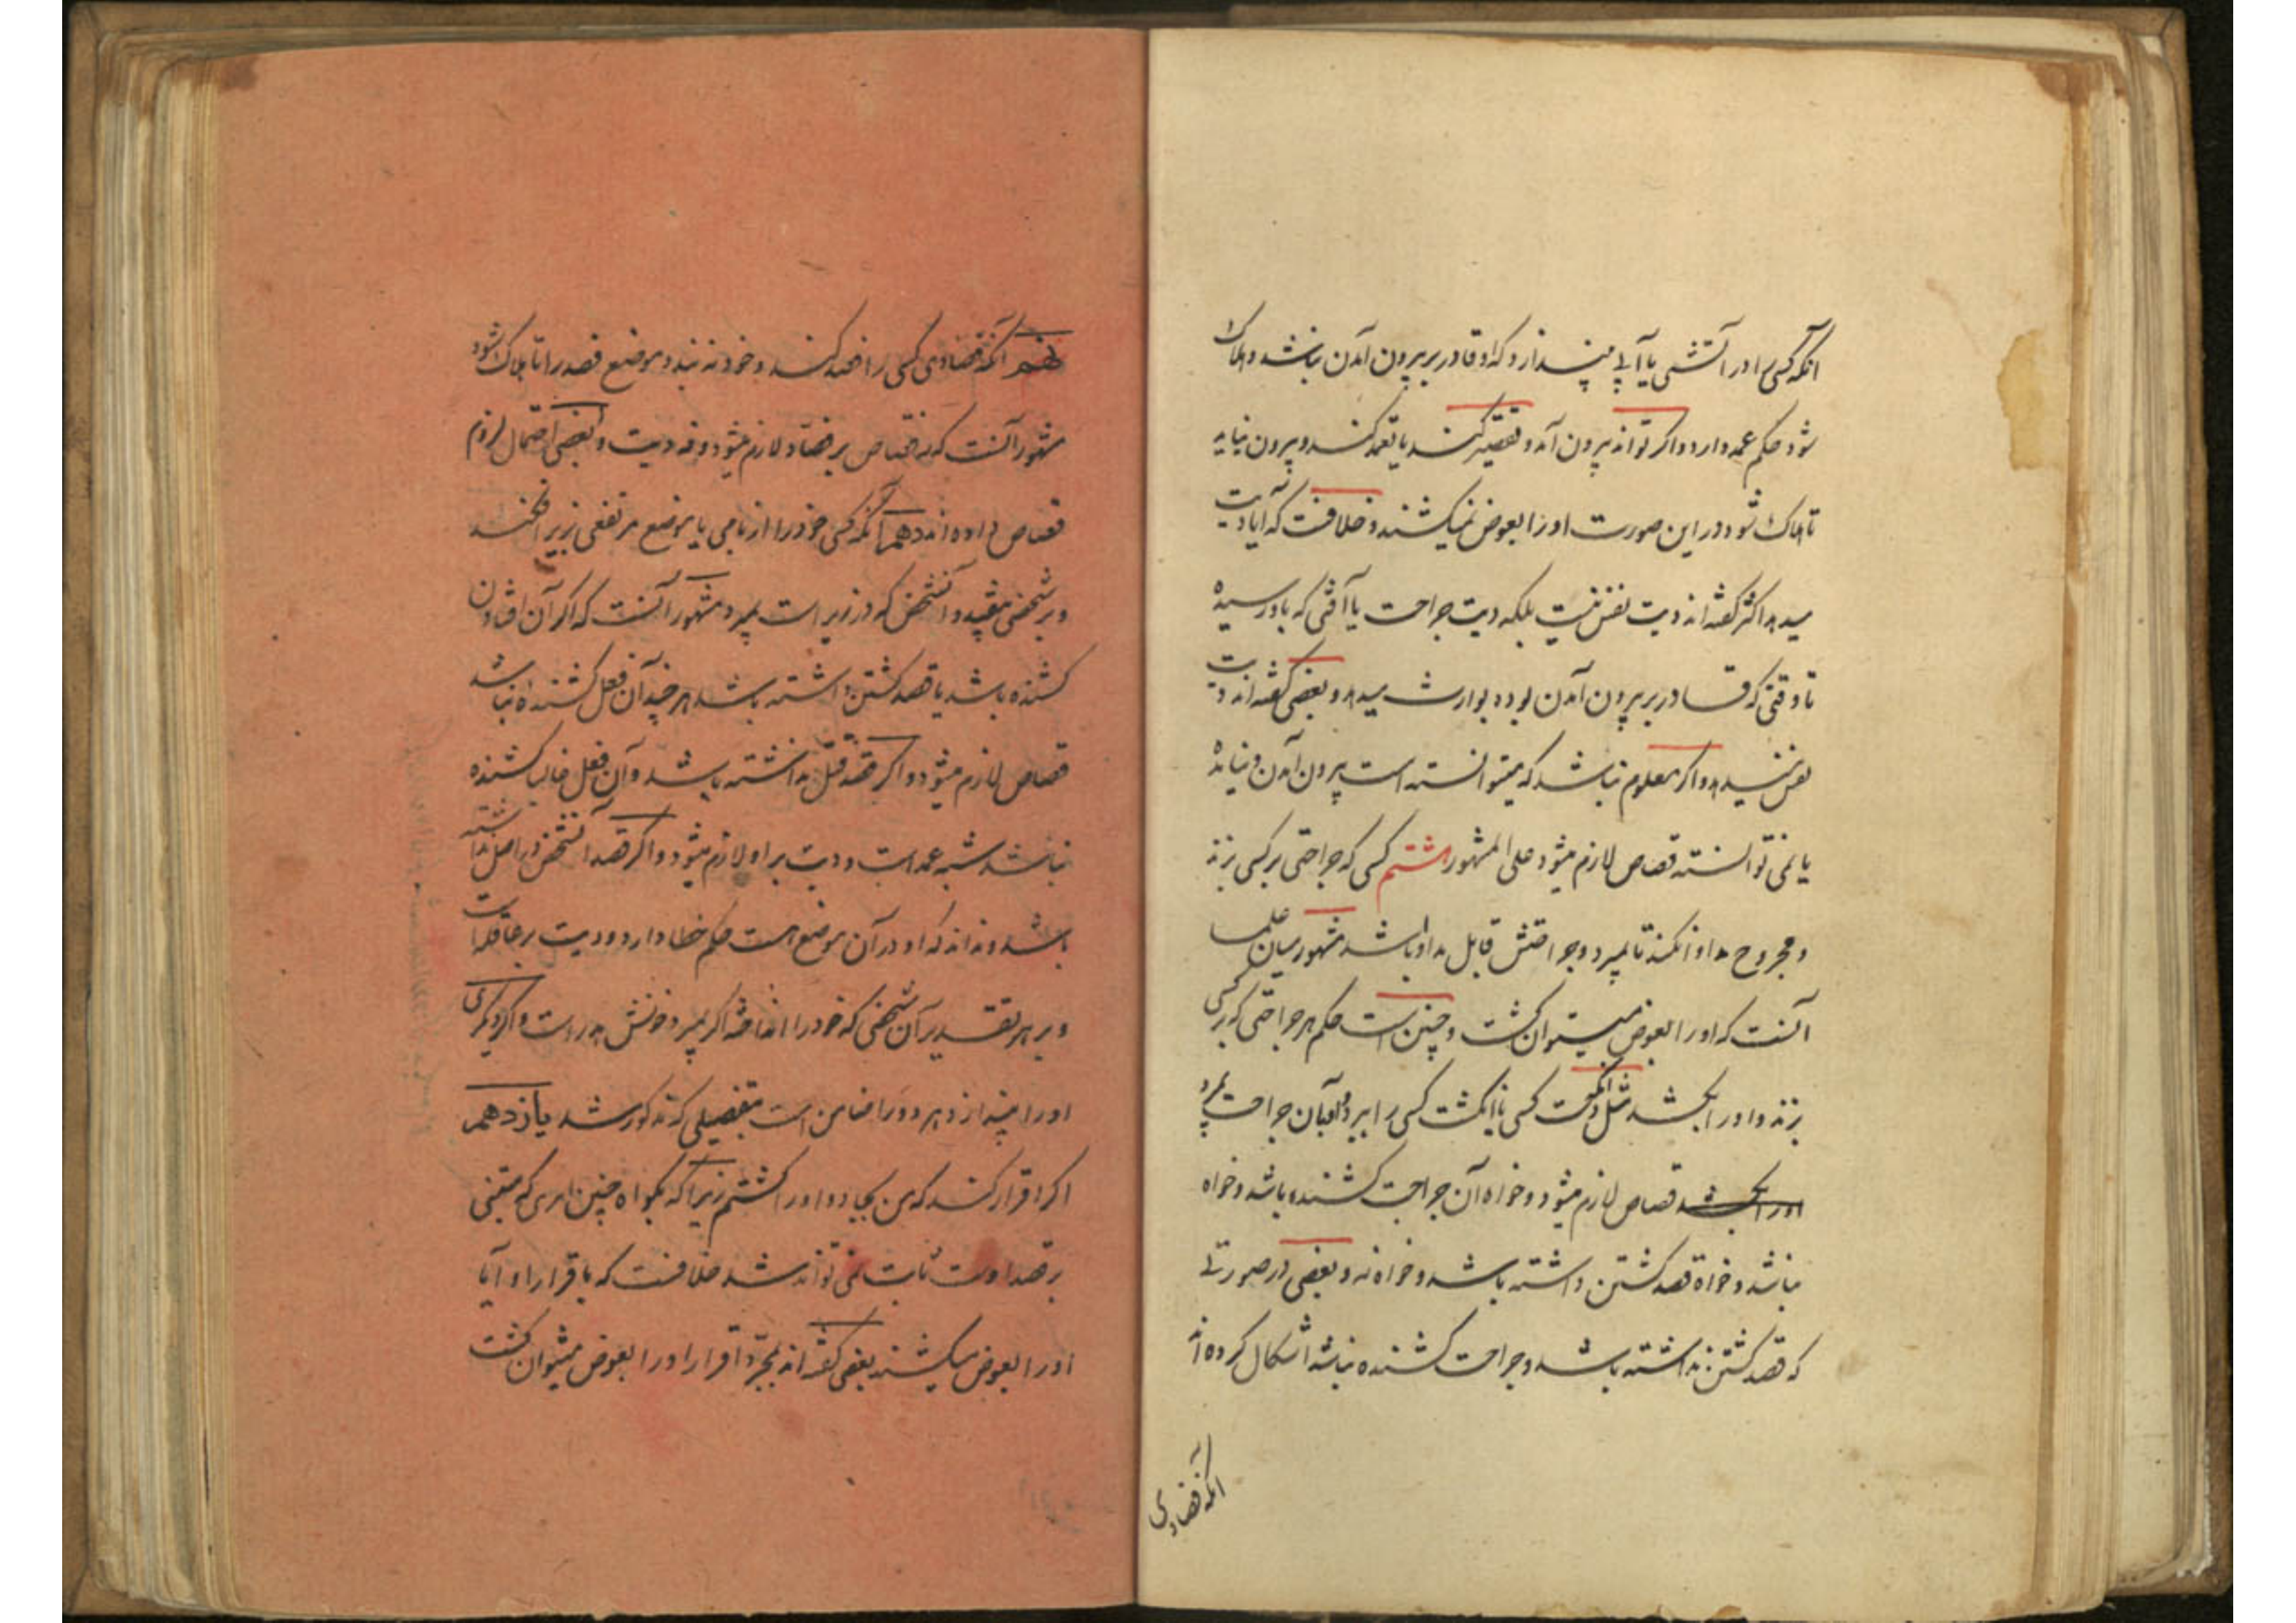 آنکه کسی را در آتشی یا آبی بیندازد که او قادر بر بیرون آمدن نباشد و هلاک
شود حکم عمد دارد و اگر تواند بیرون آمد و تقصیر کند یا تعمد کند و بیرون نیاید
تا هلاک شود در این صورت او را بعوض نمیکشند و خلافست که آیا دیت
میدهد اکثر گفته اند دیت نفس نیست بلکه دیت جراحت یا آفتی که باو رسیده
تا وقتی که قادر بر بیرون آمدن بوده بوارث میدهد و بعضی گفته اند دیت
نفس میدهد و اگر معلوم نباشد که میتوانسته است بیرون آمدن و نیامده
یا نمی توانسته قصاص لازم میشود علی المشهور هشتم کسی که جراحتی بر کسی بزند
و مجروح مداوا نکند تا بمیرد و جراحتش قابل مداوا باشد مشهور میان علما
آنست که او را بعوض میتوان کشت و چنین است حکم هر جراحتی که بر کسی
بزند و او را بکشد مثل انگشت کسی یا انگشت کسی را ببرد و بآن جراحت بمیرد
او را بکشد قصاص لازم میشود و خواه آن جراحت کشنده باشد و خواه
نباشد و خواه قصد کشتن داشته باشد و خواه نه و بعضی در صورتی
که قصد کشتن نداشته باشد و جراحت کشنده نباشد اشکال کرده اند
آنکه فصادی
نهم آنکه فصادی کسی را فصد کند و خود نه بندد موضع فصد را تا هلاک شود
مشهور آنست که نه قصاص بر فصاد لازم میشود و نه دیت و بعضی احتمال لزوم
قصاص داده اند دهم آنکه کسی خود را از بامی یا موضع مرتفعی بزیر افکند
و بر شخصی بیفتد و آن شخص که در زیر است بمیرد مشهور آنست که اگر آن افتادن
کشنده باشد یا قصد کشتن داشته باشد هر چند آن فعل کشنده نباشد
قصاص لازم میشود و اگر قصد قتل نداشته باشد و آن فعل غالبا کشنده
نباشد شبه عمد است و دیت بر او لازم میشود و اگر قصد آن شخص در اصل نداشته
باشد و نداند که او در آن موضع است حکم خطا دارد و دیت بر عاقله است
و بر هر تقدیر آن شخصی که خود را انداخته اگر بمیرد خونش هدر است و اگر دیگری
او را بیندازد هر دو را ضامن است بتفصیلی که مذکور شد یازدهم
اگر اقرار کند که من بجادو او را کشتم زیرا که بگواه چنین امری که مبتنی
بر قصد اوست ثابت نمی تواند شد خلافست که باقرار او آیا
او را بعوض میکشند بعضی گفته اند بمجرد اقرار او را بعوض میتوان کشت